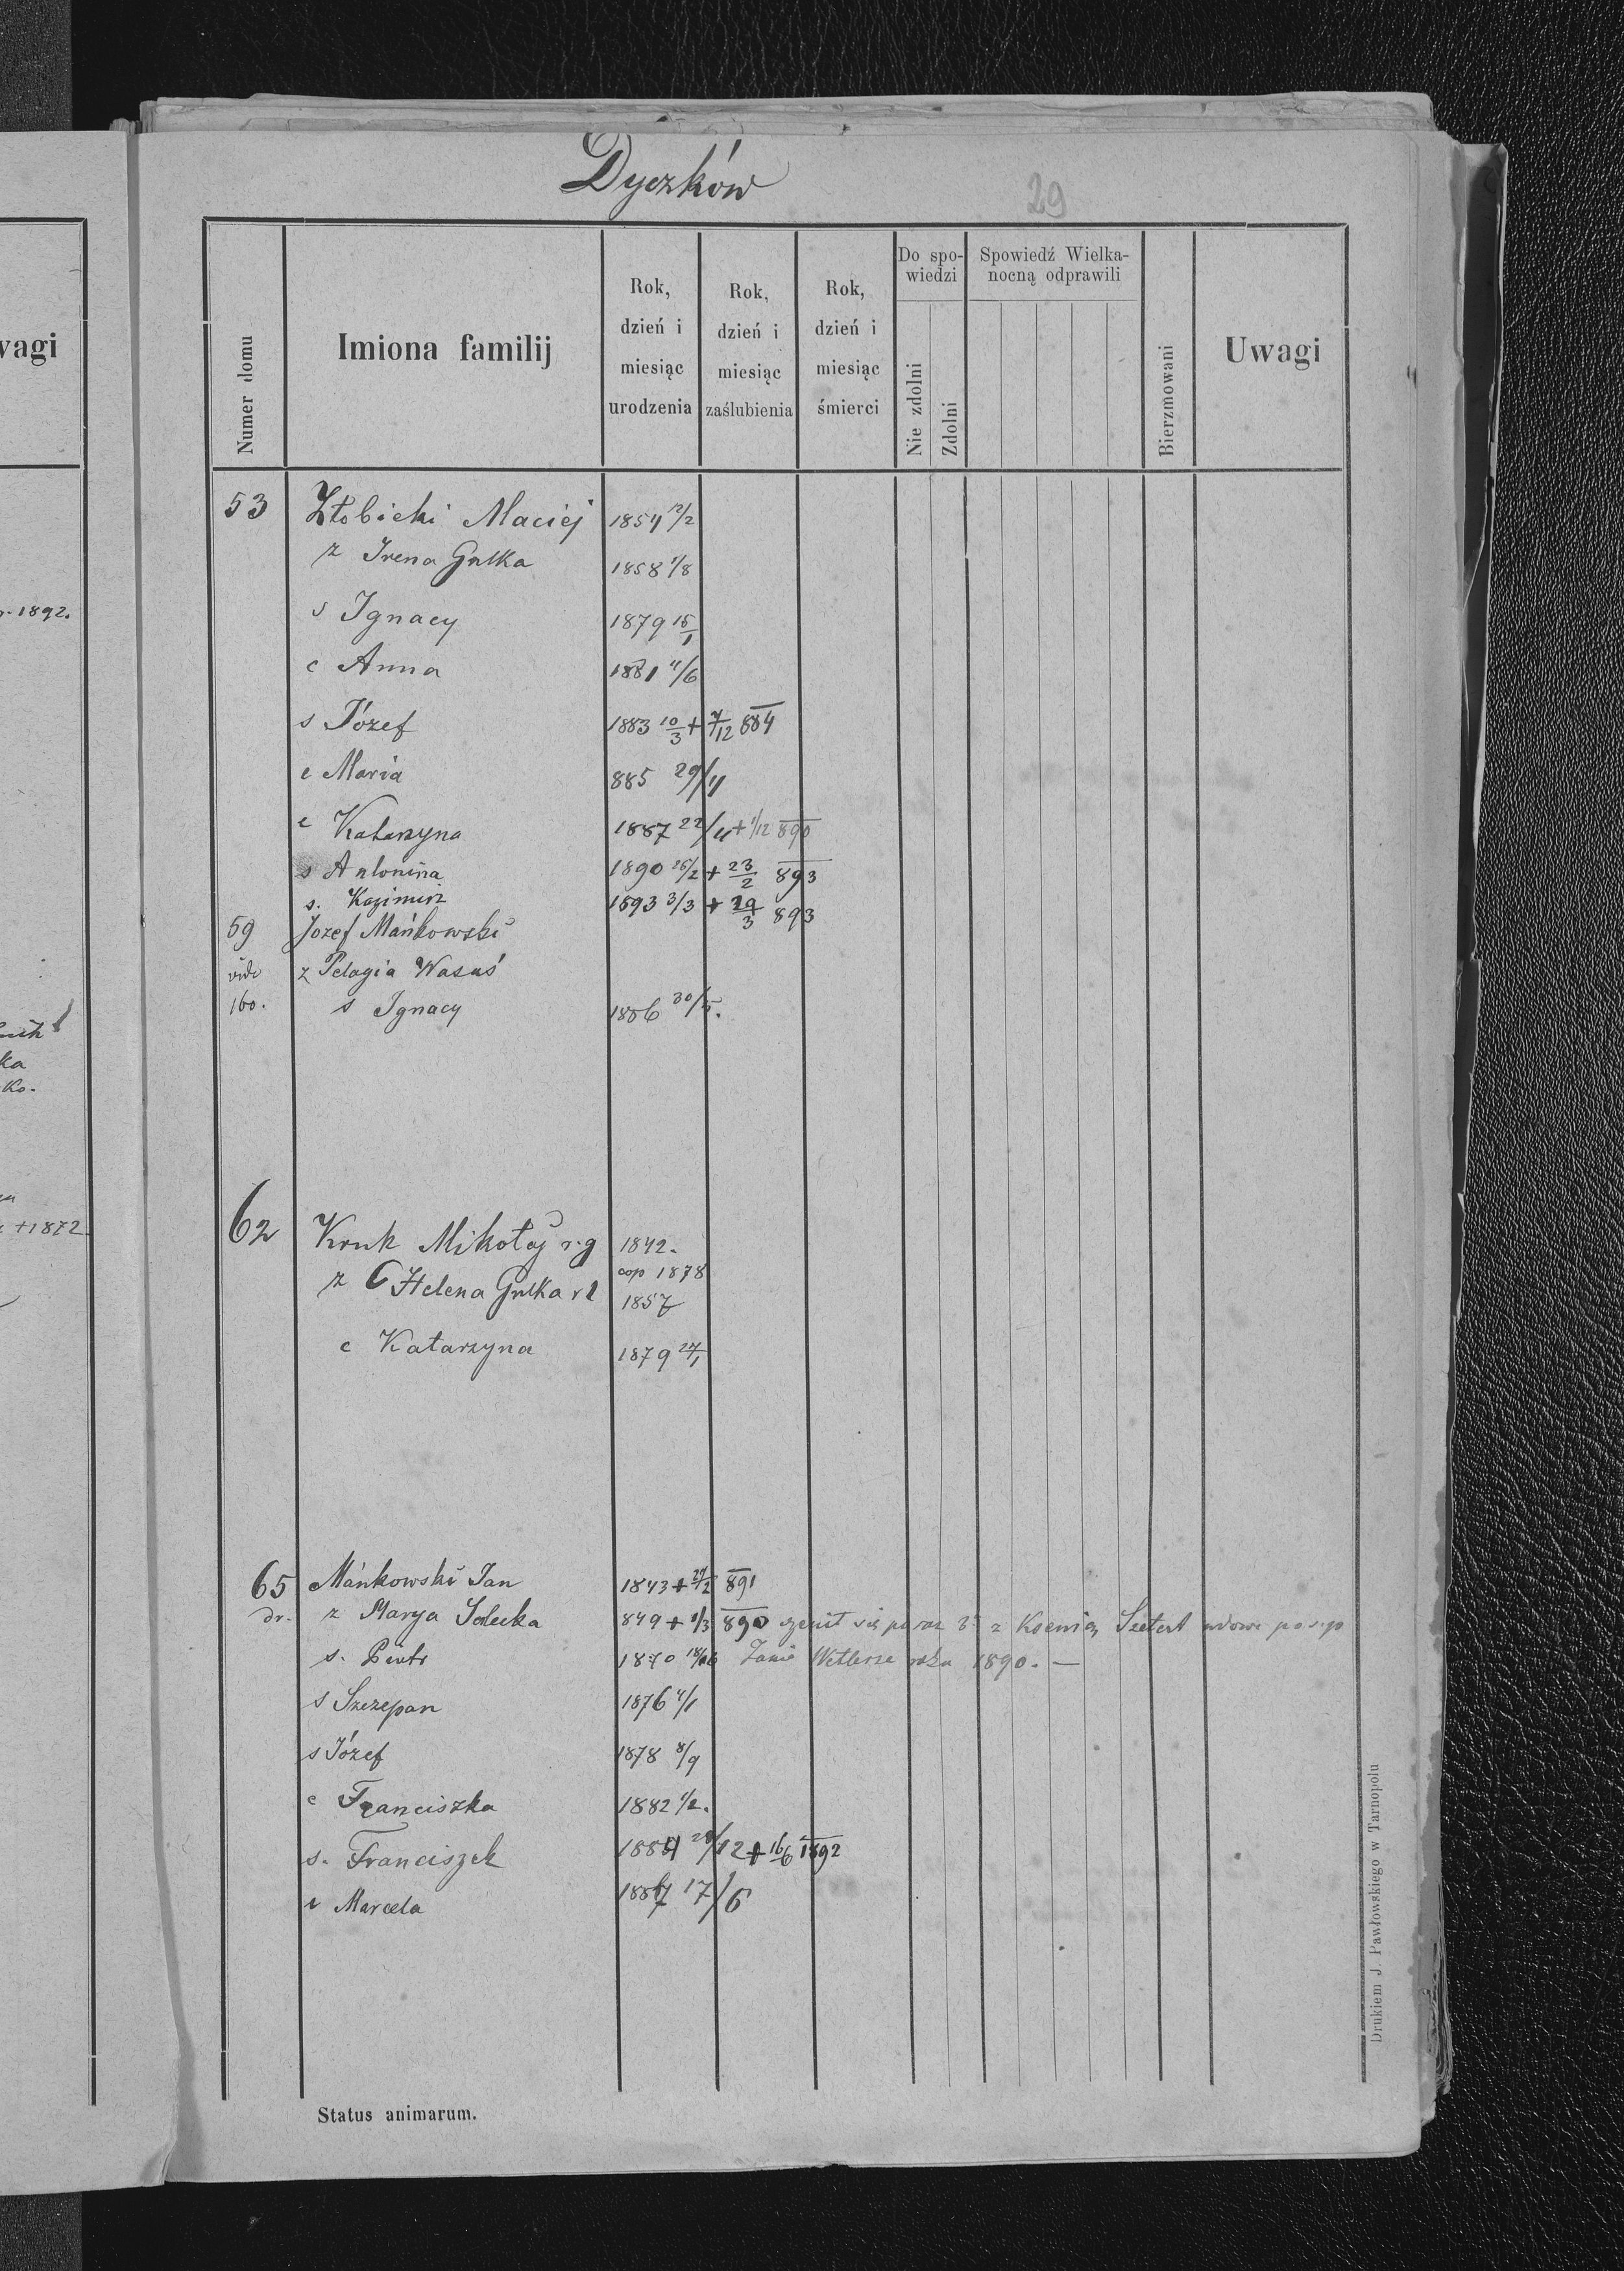 Dyczków
29
Numer domu
Imiona familij
Rok, dzień i miesiąc urodzenia
Rok, dzień i miesiąc zaślubienia
Rok, dzień i miesiąc śmierci
Do spowiedzi
Nie zdolni
Zdolni
Spowiedź Wielkanocną odprawili
Bierzmowani
Uwagi
wagi
1892.
ka
ko.
+1872
53 Złobicki Maciej 1854 12/2
ż Irena Gulka 1858 1/8
s Ignacy 1879 15/1
c Anna 1881 11/6
s Józef 1883 10/3 + 7/12 884
c Maria 885 29/11
c Katarzyna 1887 22/11 + 1/12 890
s Antonina 1890 26/2 + 23/2 893
s. Kazimirz 1893 3/3 + 29/3 893
59 Jozef Mańkowski
vide ż Pelagia Wasuś
160. s Ignacy 1886 30/5.
62 Kruk Mikołaj r.g 1842.
cop 1878
ż Helena Gulka r l 1857
c Katarzyna 1879 27/1
65 Mańkowski Jan 1843 + 27/2 891
dr. ż Marya Solecka 849 + 8/3 890 ożenił się po raz 2 z Ksenią
s. Piotr 1870 18/6 roku 1890. —
s Szczepan 1876 4/1
s Józef 1878 8/9
c Franciszka 1882 1/2.
s. Franciszek 1884 28/12 + 16/6 1892
c Marcela 1887 17/6
Status animarum.
Drukiem J. Pawłowskiego w Tarnopolu